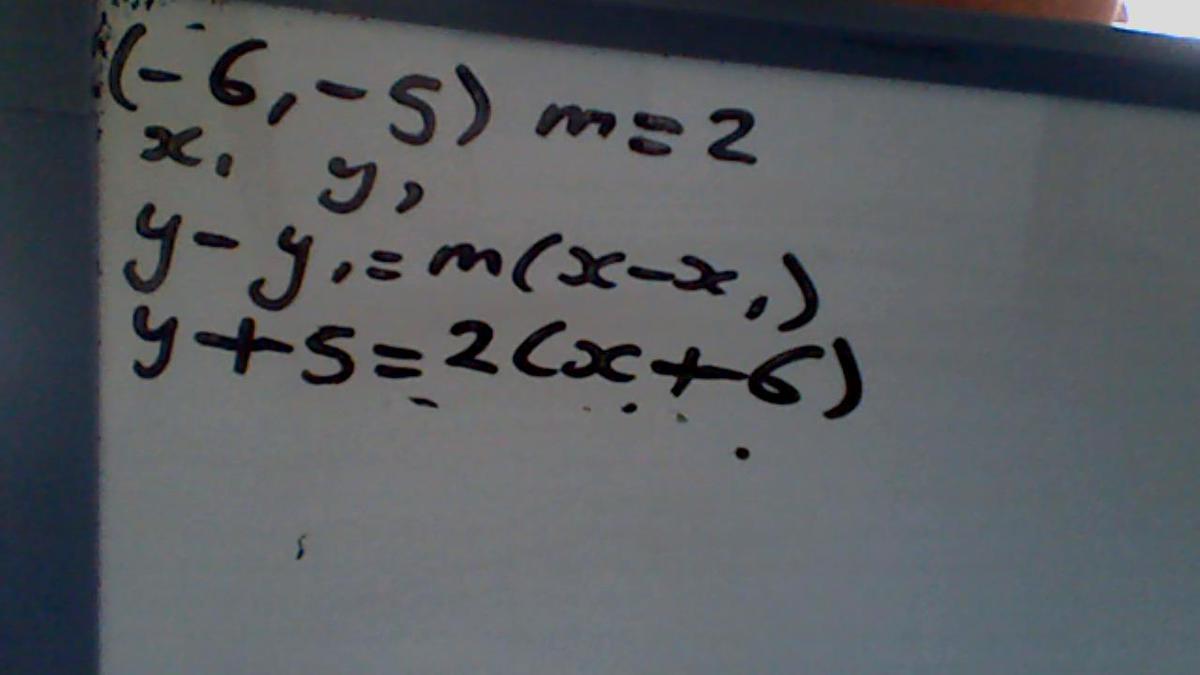 (-6, -5) m=2
x₁ y₁
y-y₁=m(x-x₁)
y+5=2(x+6)